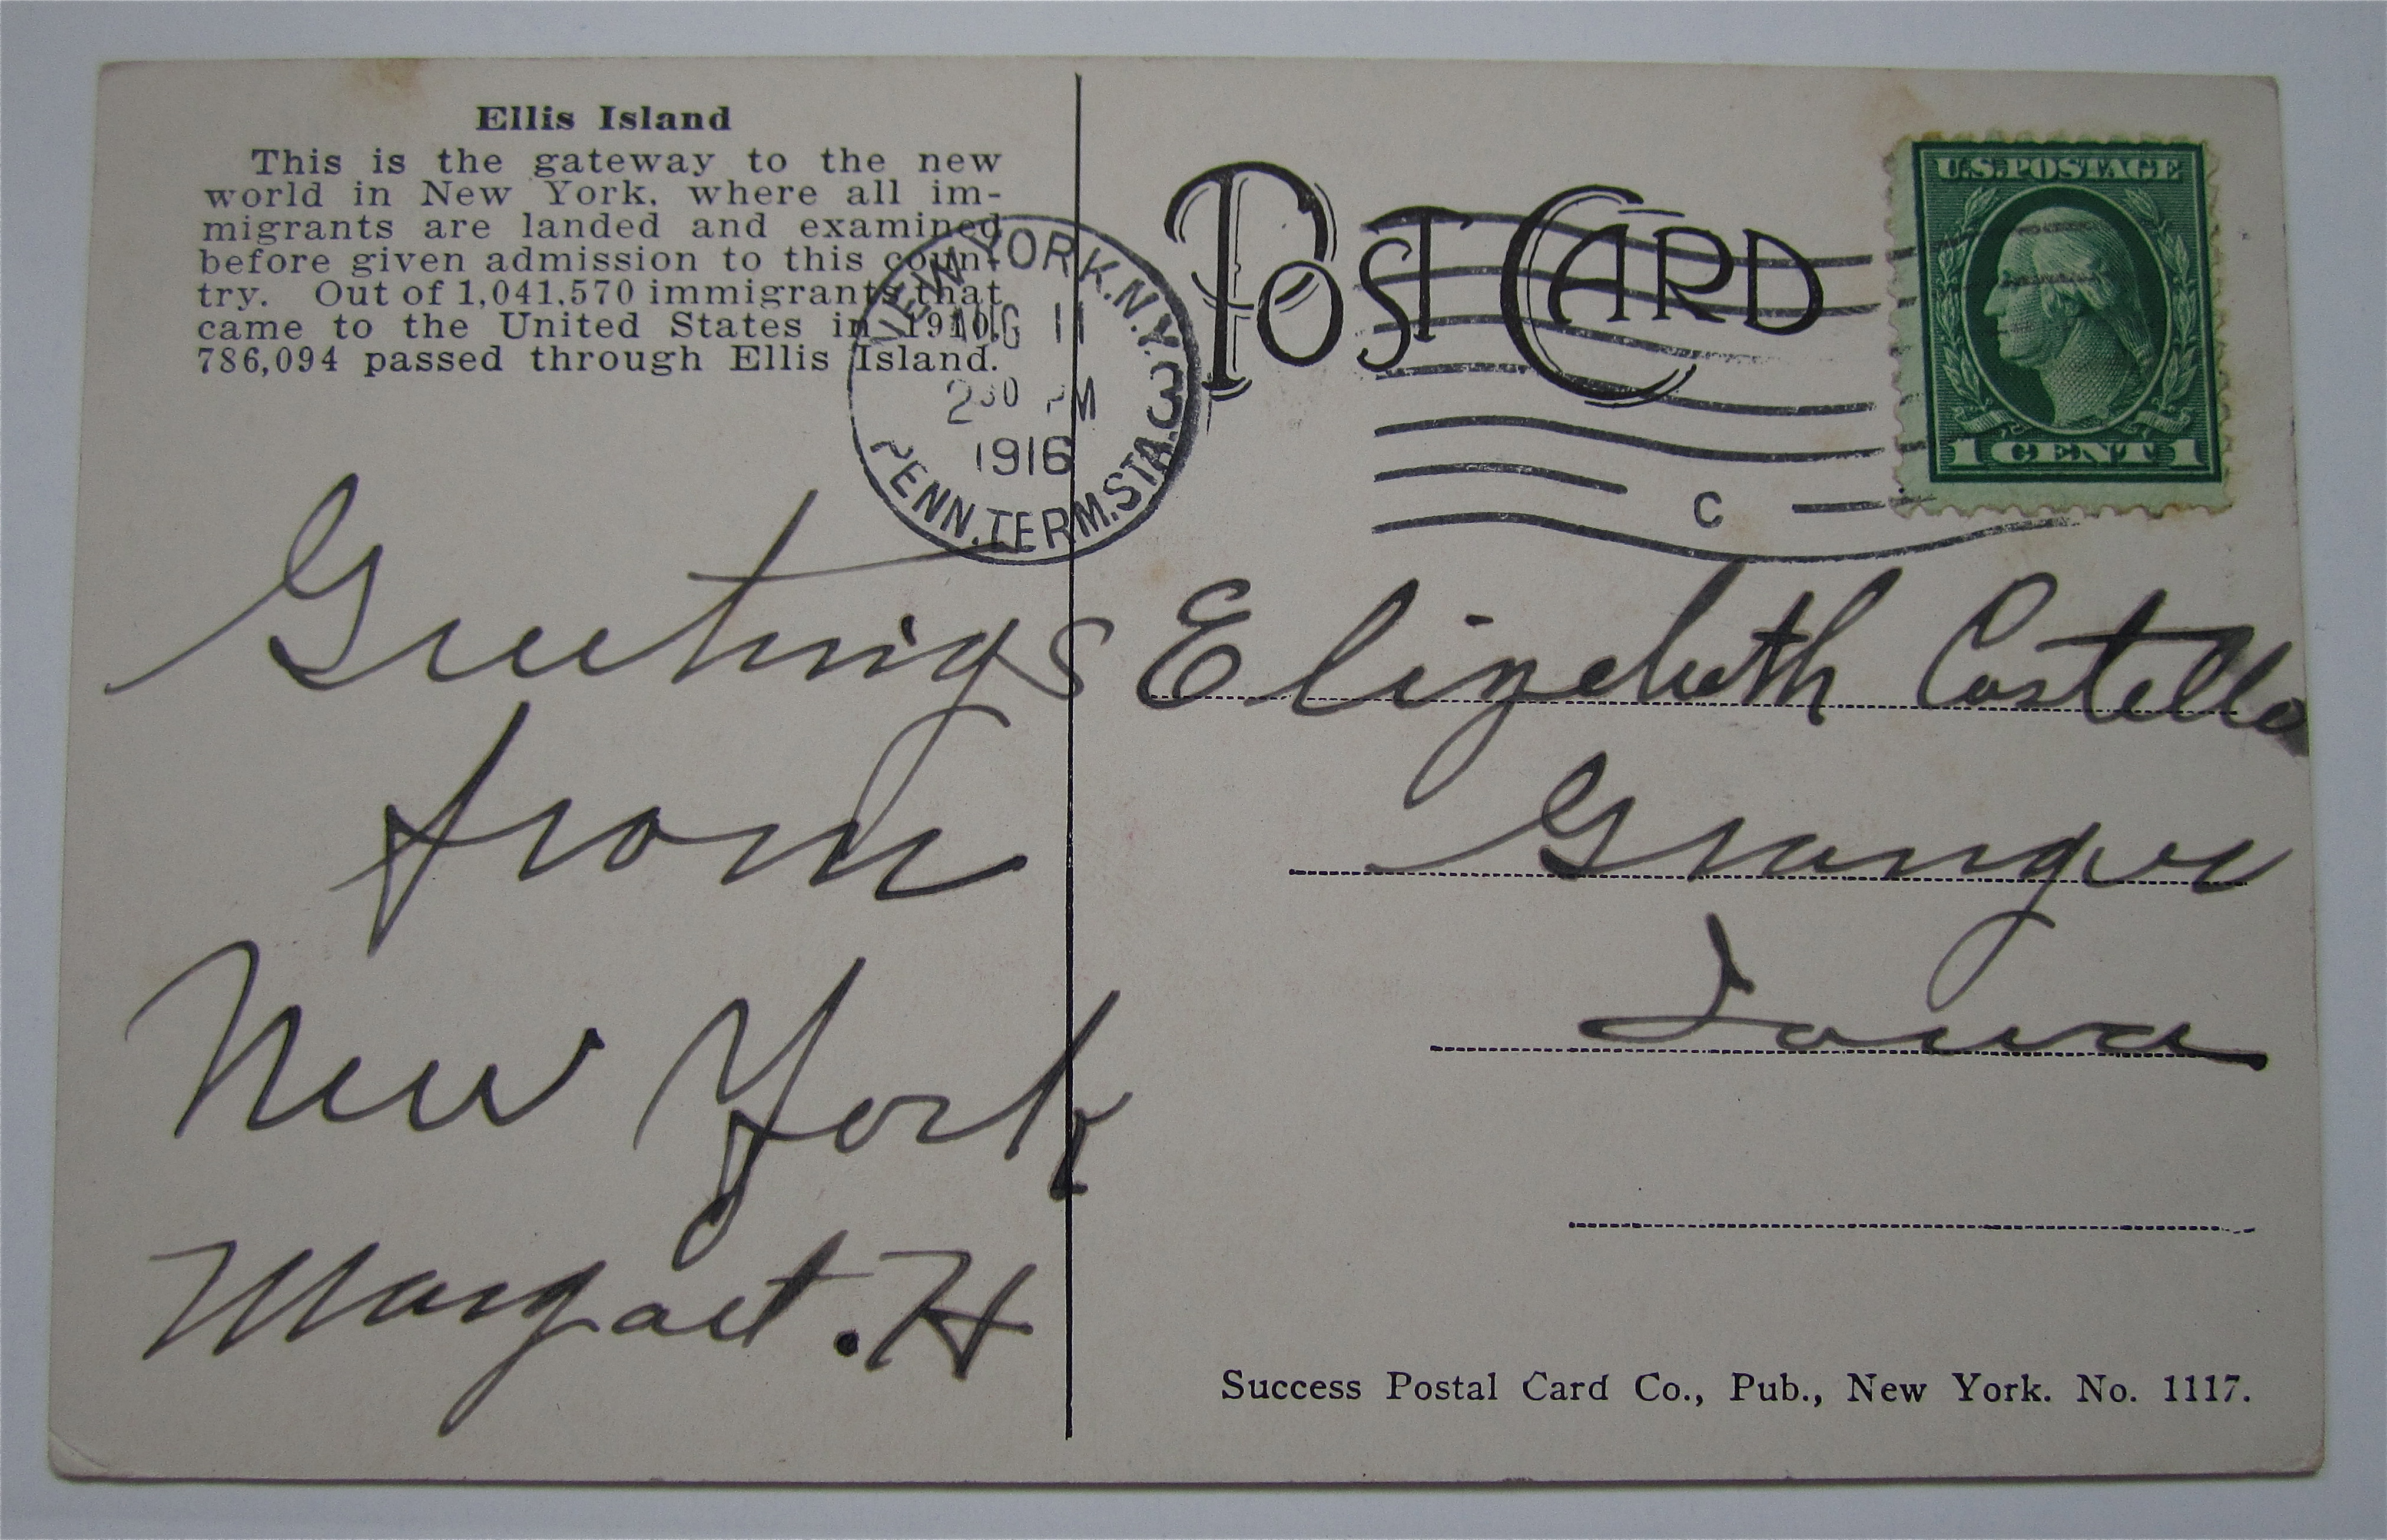 Ellis Island
This is the gateway to the new
world in New York, where all im-
migrants are landed and examined
before given admission to this coun-
try. Out of 1,041,570 immigrants that
came to the United States in 1910,
786,094 passed through Ellis Island.
POST CARD
NEW YORK, N.Y.
AUG 11
2 30 PM
1916
PENN. TERM. STA. 3
C
U.S. POSTAGE
1 CENT 1
Greetings
from
New York
Margaet. H
Elizebeth Costello
Granger
Iowa
Success Postal Card Co., Pub., New York. No. 1117.